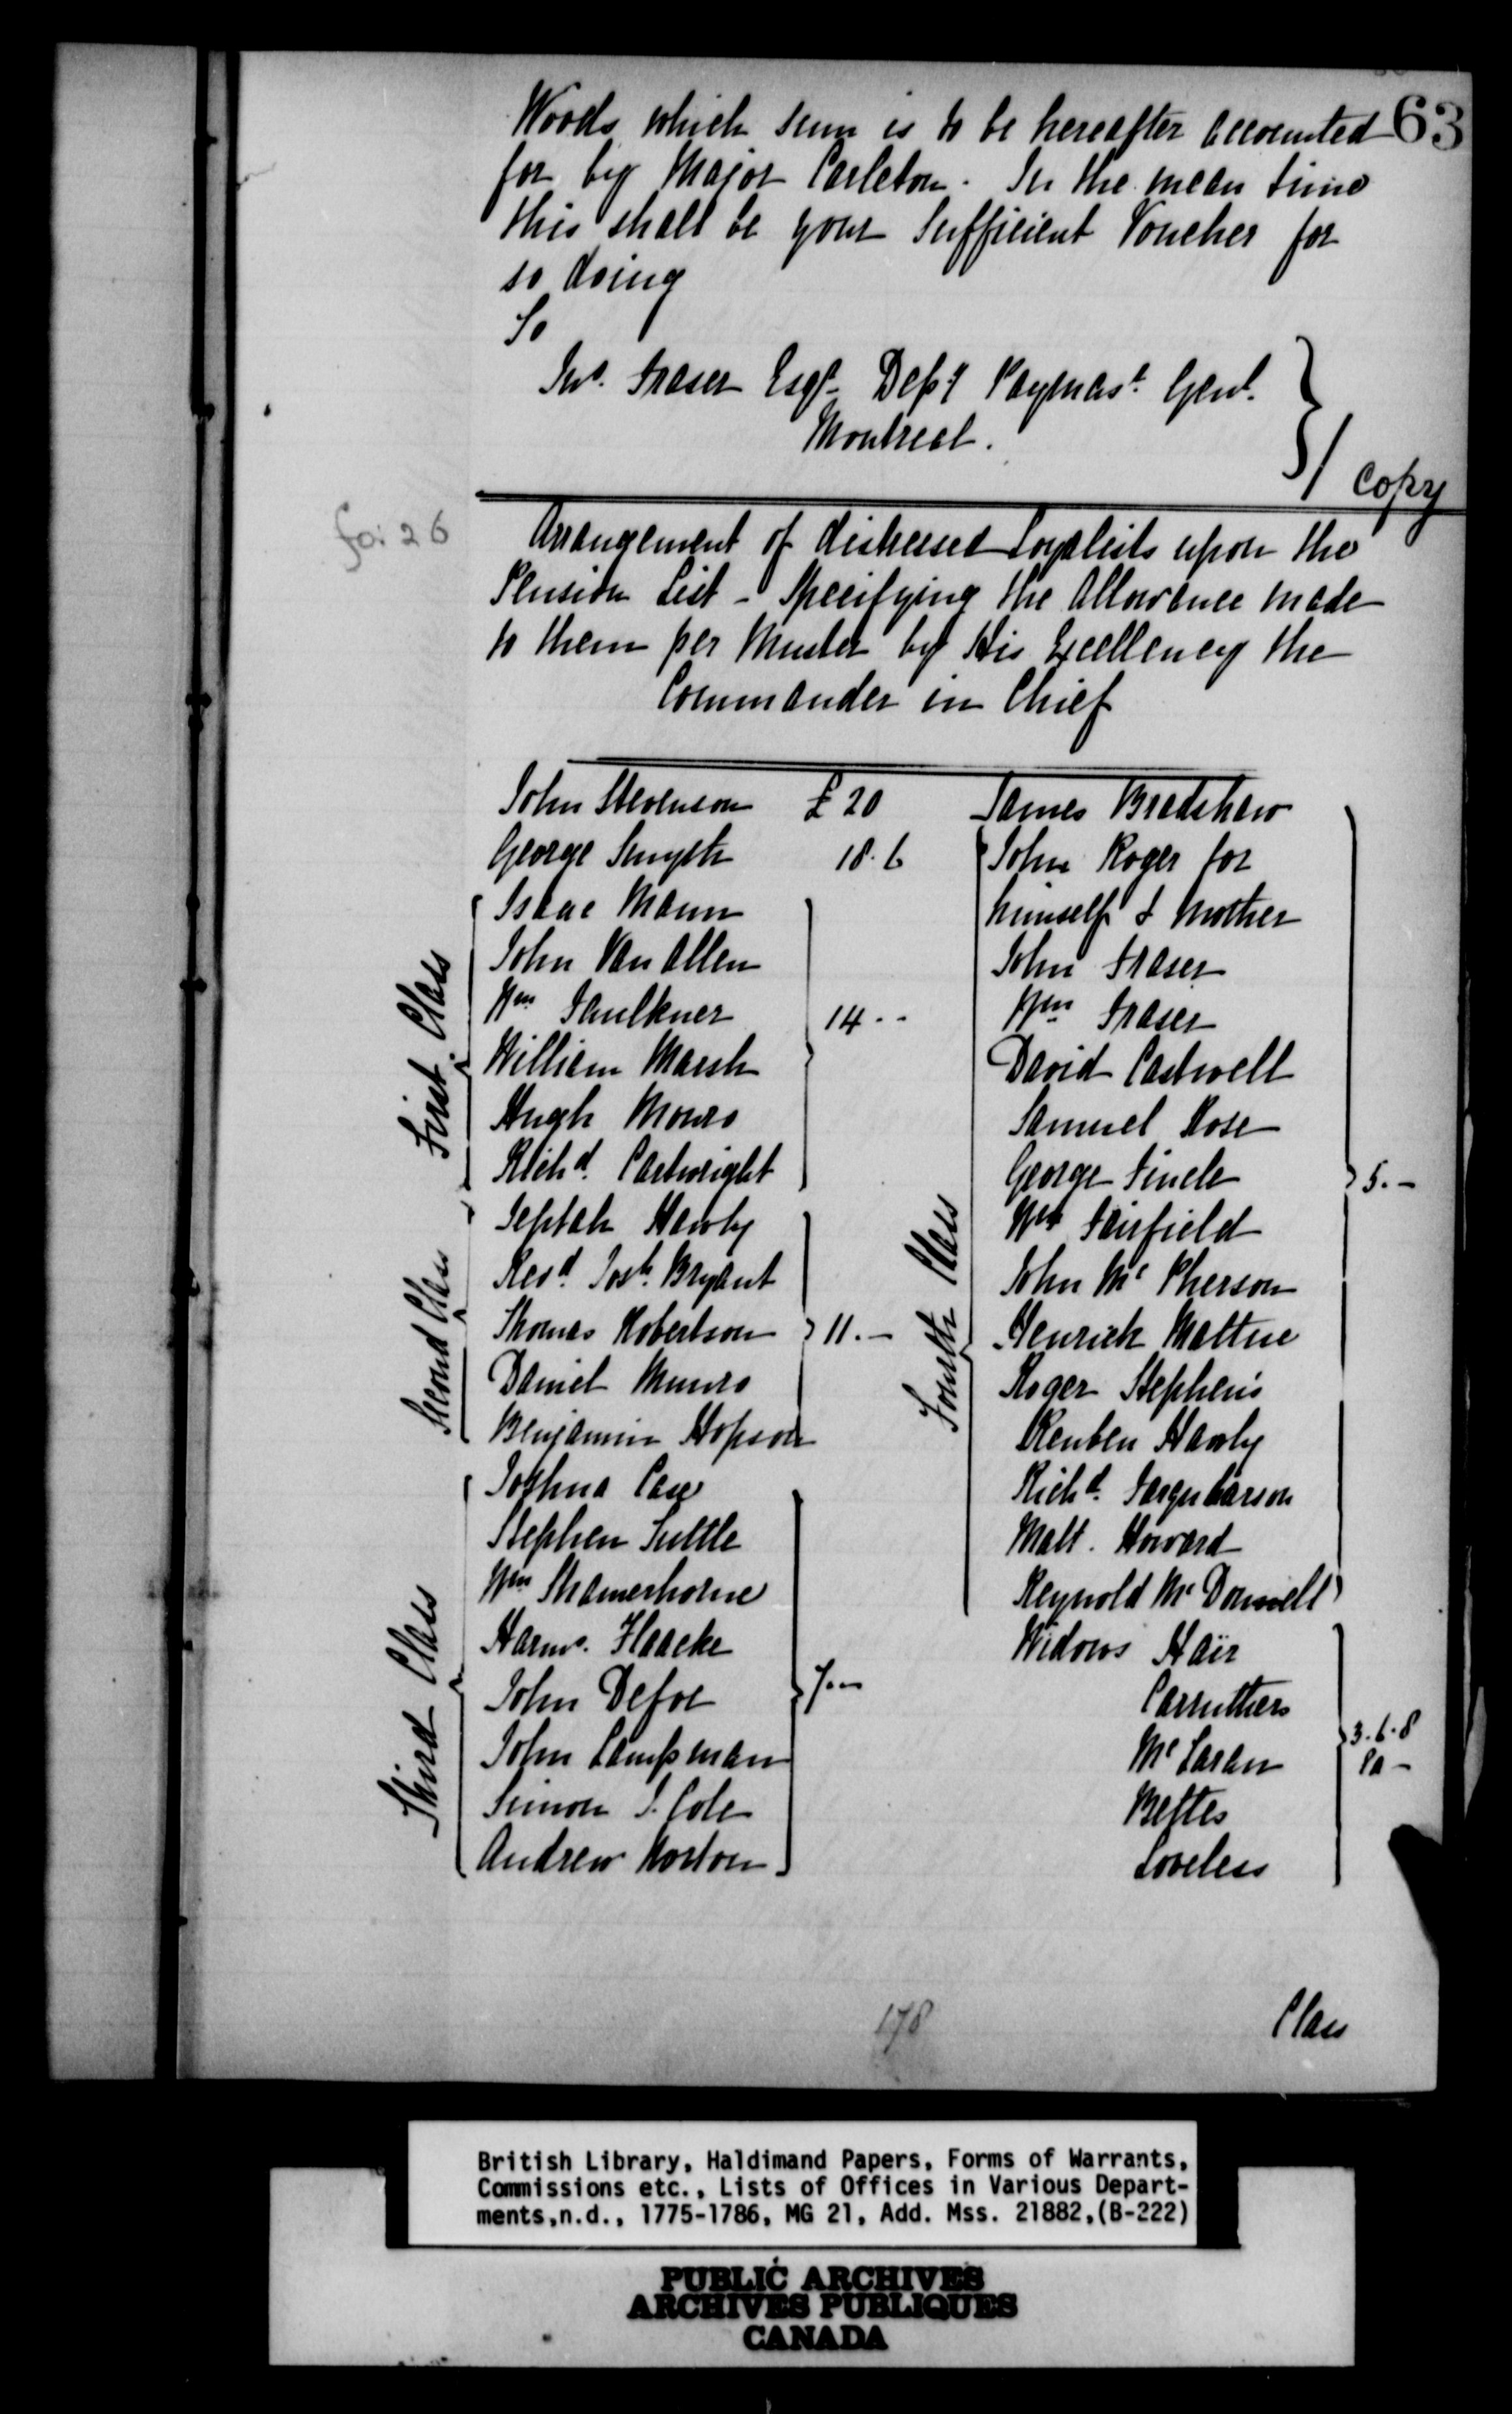 63
Woods which sum is to be hereafter accounted
for by Major Carleton. In the mean time
this shall be your Sufficient Voucher for
so doing
To
Jno. Fraser Esqr. Depy Paymast. Genl.
Montreal.
Copy
fo: 26
Arrangement of distressed Loyalists upon the
Pension List - Specifying the Allowance made
to them per Muster by His Excellency the
Commander in Chief
John Stevenson £20
George Smyth 18.6
First Class
Isaac Mann
John Van Allen
Wm Faulkner 14 - -
William Marsh
Hugh Monro
Richd. Cartwright
Second Class
Jeptah Hawly
Revd. Josh. Bryant
Thomas Robertson 11.-
Daniel Munro
Benjamin Hopson
Third Class
Joshua Case
Stephen Tuttle
Wm Shamerhorne
Harms. Haacke
John Defoe 7.-
John Lampman
Simon J. Cole
Andrew Horton
James Bradshaw
Fourth Class
John Roger for
himself & Mother
John Fraser
Wm Fraser
David Castwell
Samuel Rose
George Finch 5.-
Wm Fairfield
John Mc Pherson
Henrich Mattue
Roger Stephens
Reuben Hawly
Richd. Farquharson
Matt. Howard
Reynold Mc Donnell
Widows Hair
Carruthers
Mc Laran 3.6.8
Bettes
Loveless
178
Class
British Library, Haldimand Papers, Forms of Warrants,
Commissions etc., Lists of Offices in Various Depart-
ments,n.d., 1775-1786, MG 21, Add. Mss. 21882,(B-222)
PUBLIC ARCHIVES
ARCHIVES PUBLIQUES
CANADA